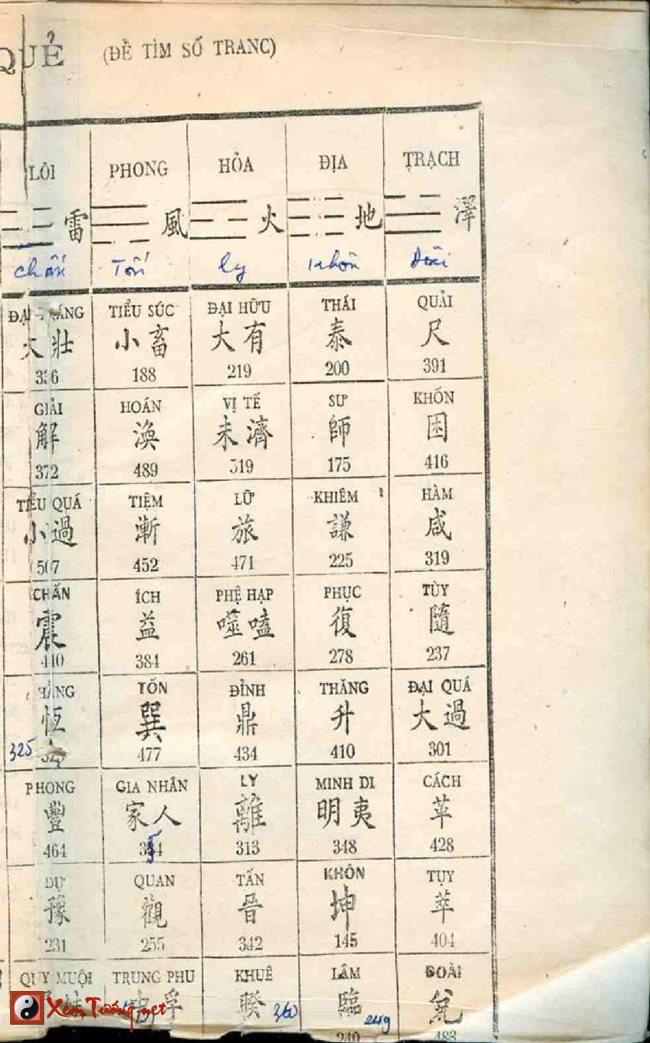 QUẺ (ĐỀ TÌM SỐ TRANG)
LÔI PHONG HỎA ĐỊA TRẠCH
雷 風 火 地 澤
Chấn Tốn Ly Khôn Đoài
ĐẠI TIỂU SÚC ĐẠI HỮU THÁI QUẢI
大壯 小畜 大有 泰 夬
188 219 200 391
GIẢI HOÁN VỊ TẾ SƯ KHỐN
解 渙 未濟 師 困
372 489 519 175 416
TIỂU QUÁ TIỆM LỮ KHIÊM HÀM
小過 漸 旅 謙 咸
507 452 471 225 319
CHẤN ÍCH PHỆ HẠP PHỤC TÙY
震 益 噬嗑 復 隨
440 384 261 278 237
HẰNG TỐN ĐỈNH THĂNG ĐẠI QUÁ
恆 巽 鼎 升 大過
325 477 434 410 301
PHONG GIA NHÂN LY MINH DI CÁCH
豐 家人 離 明夷 革
464 313 348 428
DỰ QUAN TẤN KHÔN TỤY
豫 觀 晉 坤 萃
231 255 342 145 404
QUY MUỘI TRUNG PHU KHUÊ LÂM ĐOÀI
妹 中孚 睽 臨 兌
360 249 483
XemTuong.net